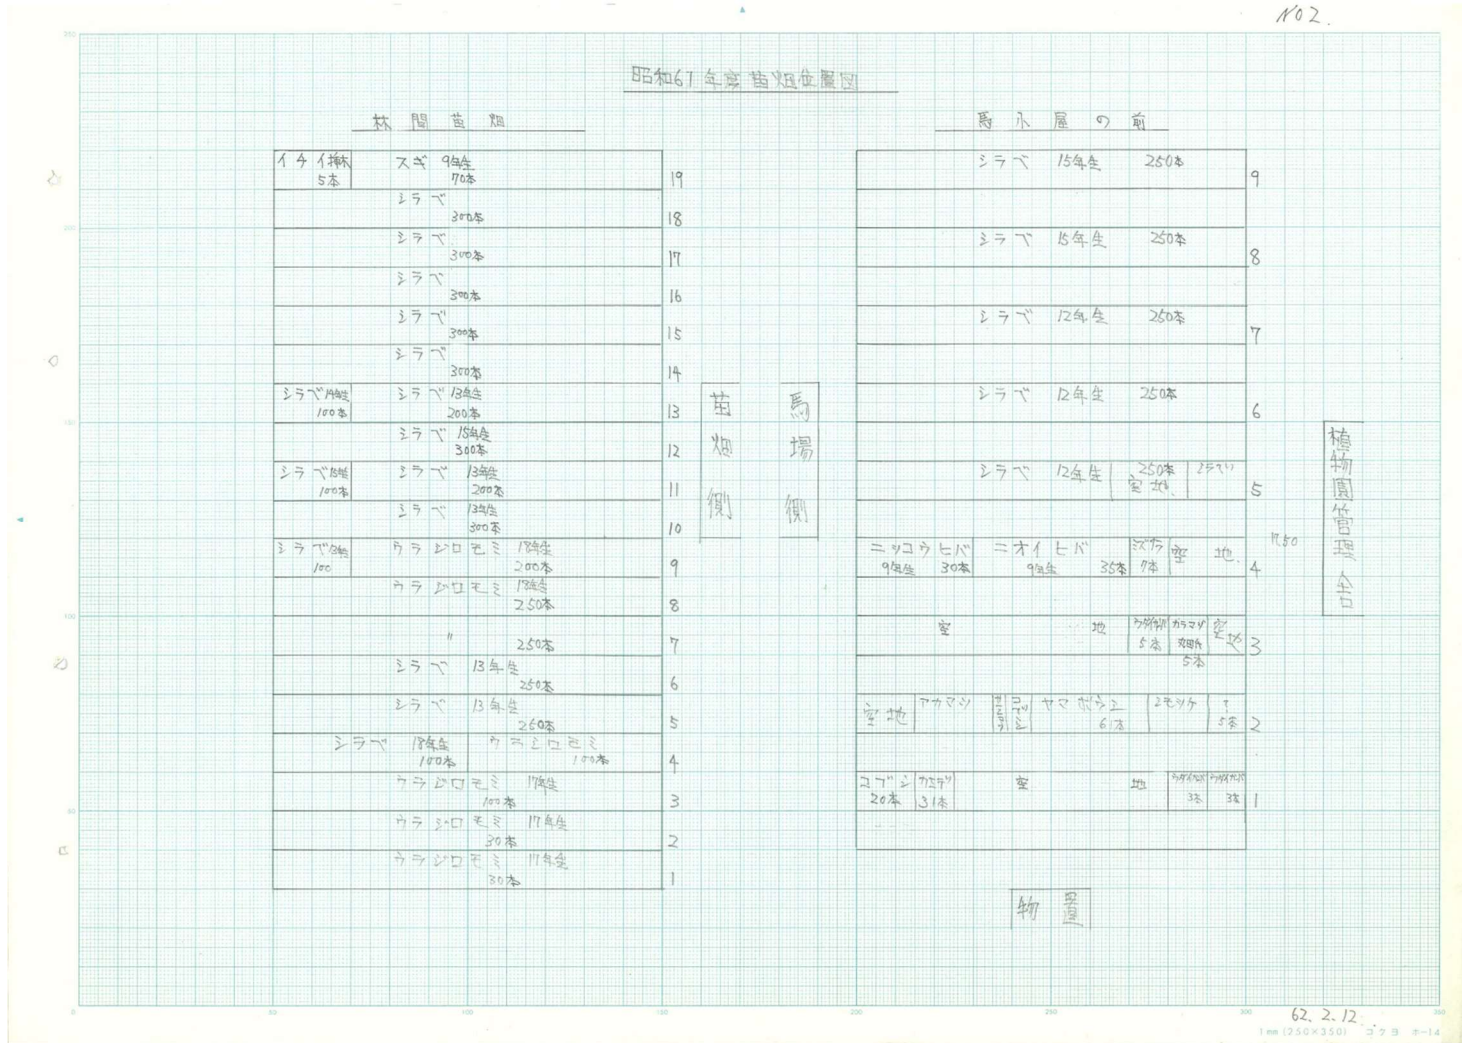 NO2.
昭和61年度苗畑位置図
林間苗畑
イチイ挿木 スギ 9年生
5本 70本 19
シラベ
300本 18
シラベ
300本 17
シラベ
300本 16
シラベ
300本 15
シラベ
300本 14
シラベ14年生 シラベ 13年生
100本 200本 13
シラベ 15年生
300本 12
シラベ15年生 シラベ 13年生
100本 200本 11
シラベ 13年生
300本 10
シラベ13年生 ウラジロモミ 18年生
100 200本 9
ウラジロモミ 18年生
250本 8
〃
250本 7
シラベ 13年生
250本 6
シラベ 13年生
250本 5
シラベ 18年生 ウラジロモミ
100本 100本 4
ウラジロモミ 17年生
100本 3
ウラジロモミ 17年生
30本 2
ウラジロモミ 17年生
30本 1
苗畑側
馬場側
馬小屋の前
シラベ 15年生 250本
9
シラベ 15年生 250本
8
シラベ 12年生 250本
7
シラベ 12年生 250本
6
シラベ 12年生 250本
空地 5
ニッコウヒバ ニオイヒバ ミズナラ 空地
9年生 30本 9年生 35本 7本 4
空地 ウダイカンバ カラマツ 空地
5本 3
5本
空地 アカマツ コブシ ヤマボウシ シモツケ ?
61本 5本 2
コブシ カエデ 空地 ウダイカンバ ウダイカンバ
20本 31本 3本 3本 1
植物園管理舎
1750
物置
62.2.12.
1mm(250×350) コクヨ ホ-14